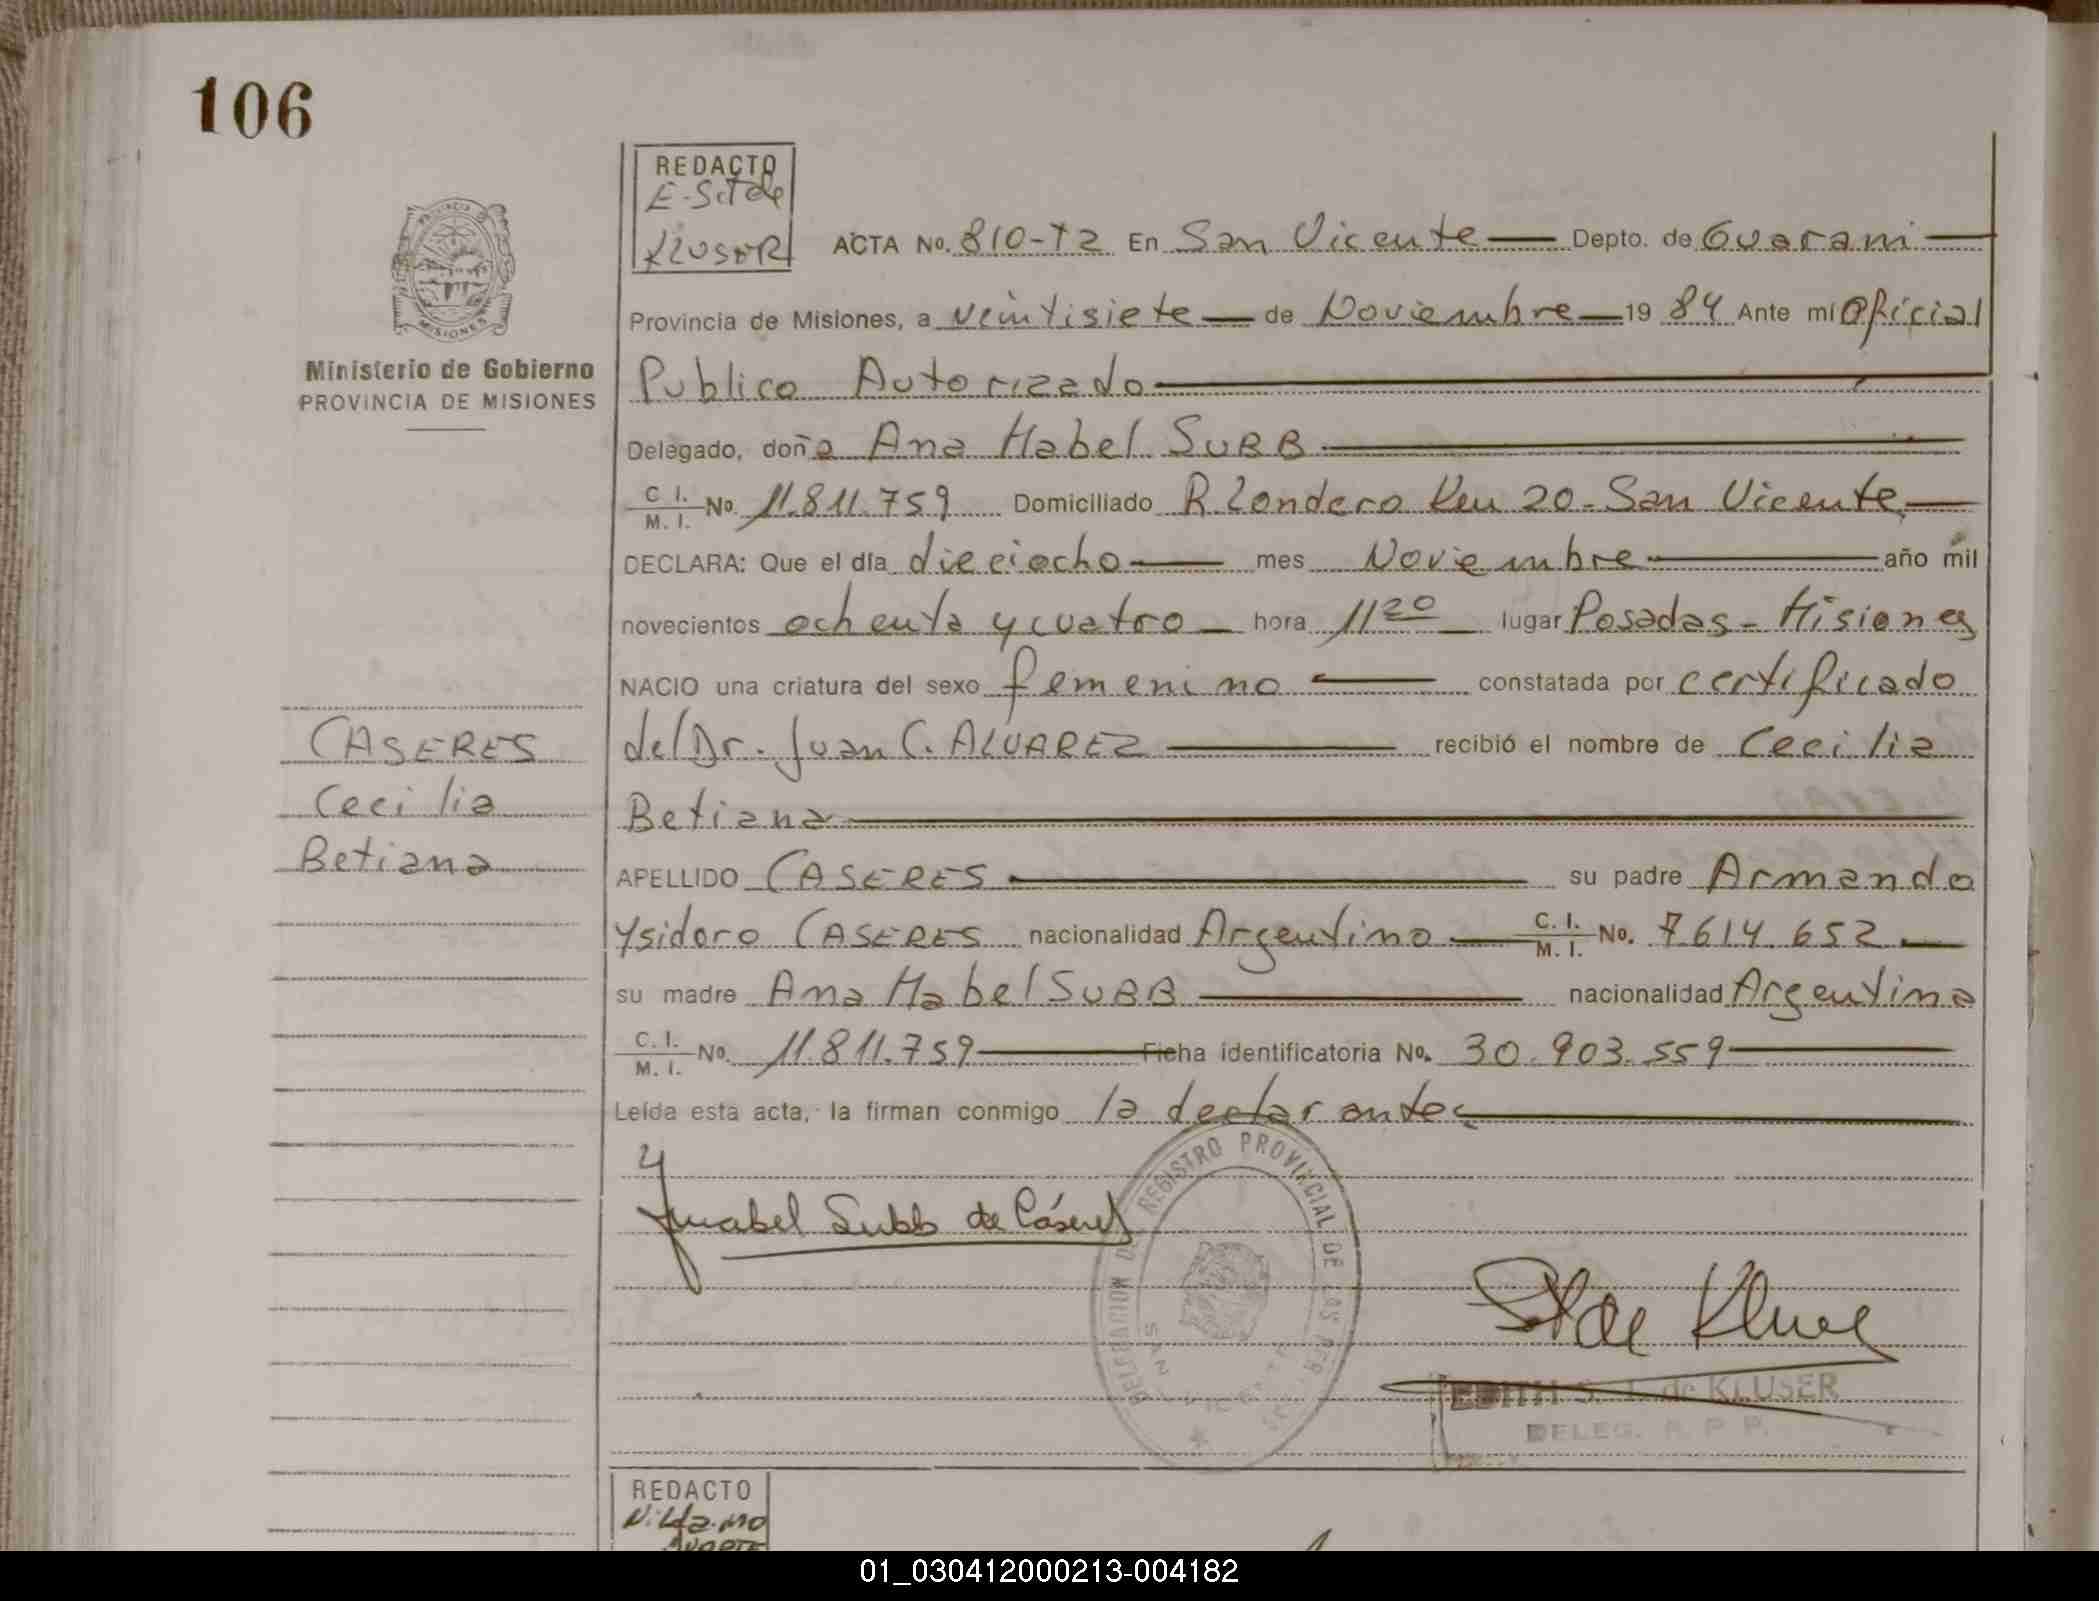 106
REDACTO
E. S. T de
KLUSER
ACTA No. 810-T2 En San Vicente Depto. de Guarani
Provincia de Misiones, a veintisiete de Noviembre 19 84 Ante mí Oficial
Publico Autorizado
Ministerio de Gobierno
PROVINCIA DE MISIONES
Delegado, doña Ana Mabel SUBB
C. I. M. I. No. 11.811.759 Domiciliado R. Londero Km 20 - San Vicente
DECLARA: Que el día dieciocho mes Noviembre año mil
novecientos ochenta y cuatro hora 11 20 lugar Posadas - Misiones
NACIO una criatura del sexo femenino constatada por certificado
del Dr. Juan C. ALVAREZ recibió el nombre de Cecilia
Betiana
CASERES
Cecilia
Betiana
APELLIDO CASERES su padre Armando
Ysidoro CASERES nacionalidad Argentino C. I. M. I. No. 7614.652
su madre Ana Mabel SUBB nacionalidad Argentina
C. I. M. I. No. 11.811.759 Ficha identificatoria No. 30.903.559
Leída esta acta, la firman conmigo la declarante
Anabel Subb de Cáseres
DELEGACION DEL REGISTRO PROVINCIAL DE LAS PER
SAN VICENTE
de Kluser
EDITH S. T. de KLUSER
DELEG. R. P. P.
REDACTO
01_030412000213-004182